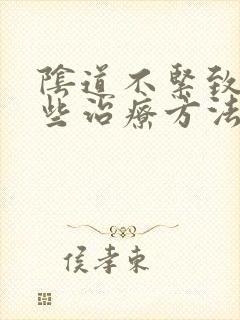 陰道不緊致
些治療方法
侯孝東